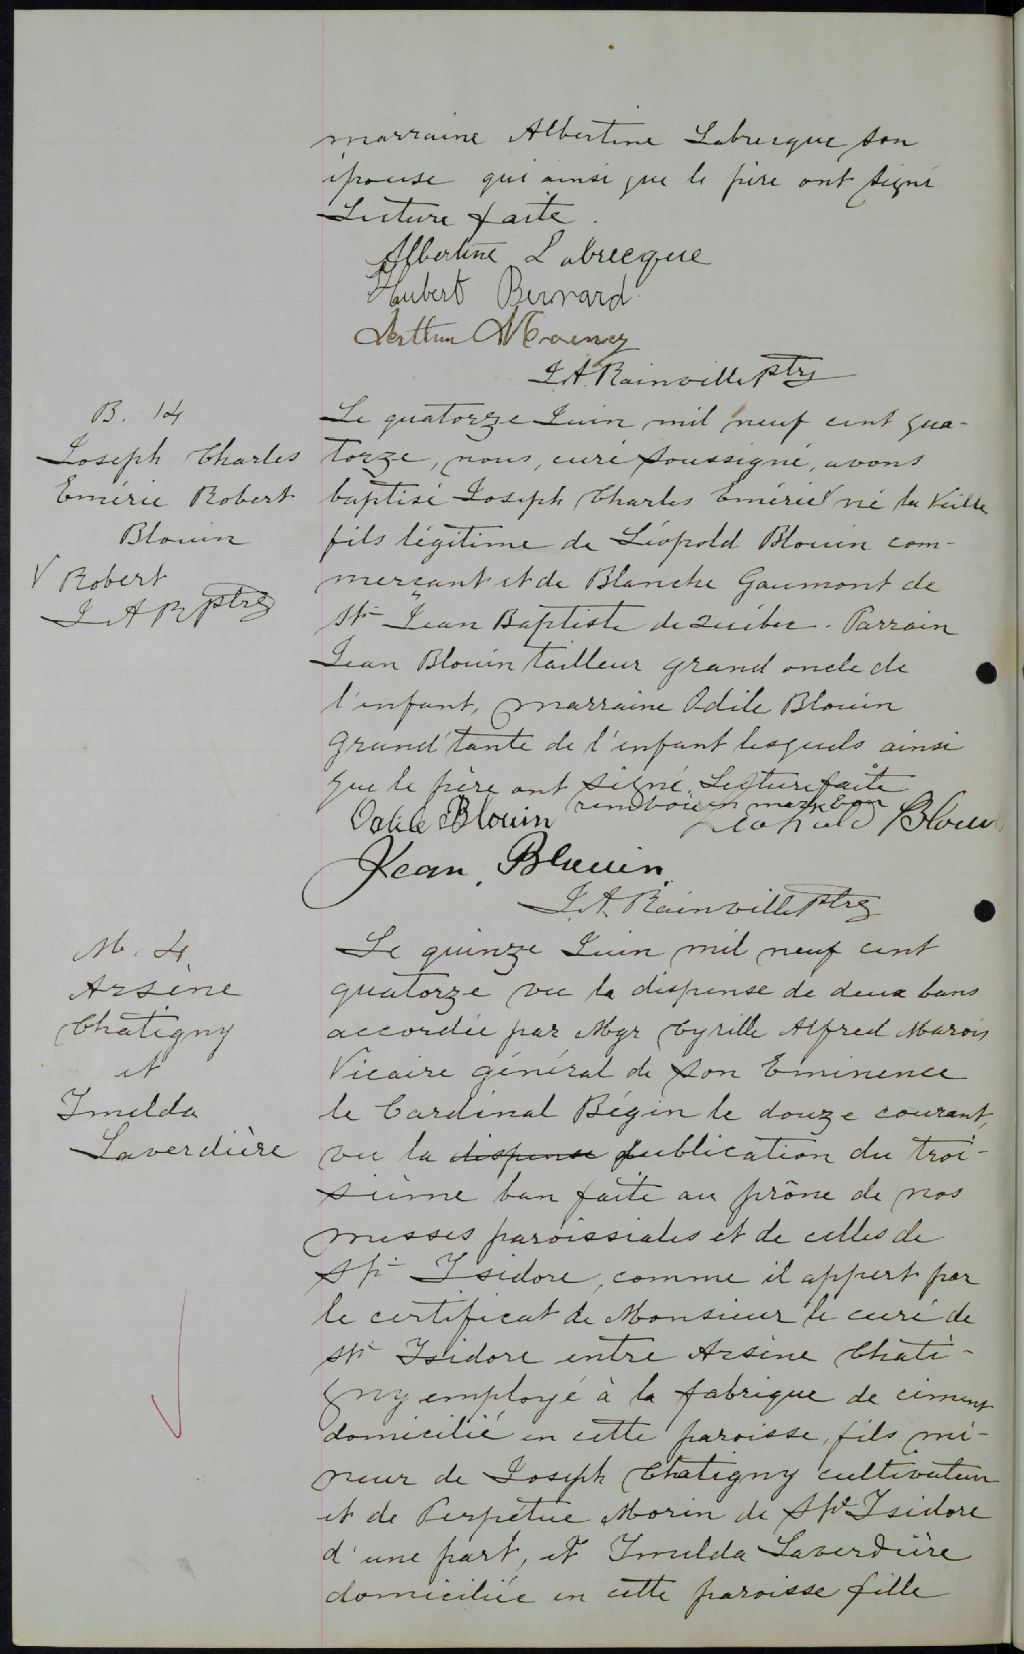 marraine Albertine Labrecque son
épouse qui ainsi que le père ont signé
Lecture faite.
Albertine Labrecque
Hubert Bernard
Arthur
J.A. Rainville ptre
B. 14
Joseph Charles
Émérie Robert
Blouin
√ Robert
J A R ptre
Le quatorze Juin mil neuf cent qua-
torze, nous, curé soussigné, avons
baptisé Joseph Charles Émérie √ né la veille
fils légitime de Léopold Blouin com-
merçant et de Blanche Gaumont de
St Jean Baptiste de Québec. Parrain
Jean Blouin tailleur grand oncle de
l'enfant, marraine Odile Blouin
grand'tante de l'enfant lesquels ainsi
que le père ont signé. Lecture faite
renvoi en marge bon
Odile Blouin Léopold Blouin
Jean Blouin
J.A. Rainville ptre
M. 4
Arsène
Chatigny
et
Imelda
Laverdière
Le quinze Juin mil neuf cent
quatorze vu la dispense de deux bans
accordée par Mgr Cyrille Alfred Marois
Vicaire général de Son Eminence
le Cardinal Bégin le douze courant,
vu la dispense publication du troi-
sième ban faite au prône de nos
messes paroissiales et de celles de
St Isidore, comme il appert par
le certificat de Monsieur le curé de
St Isidore entre Arsène Chati-
gny employé à la fabrique de ciment
domicilié en cette paroisse, fils mi-
neur de Joseph Chatigny cultivateur
et de Perpétue Morin de St Isidore
d'une part, et Imelda Laverdière
domiciliée en cette paroisse fille